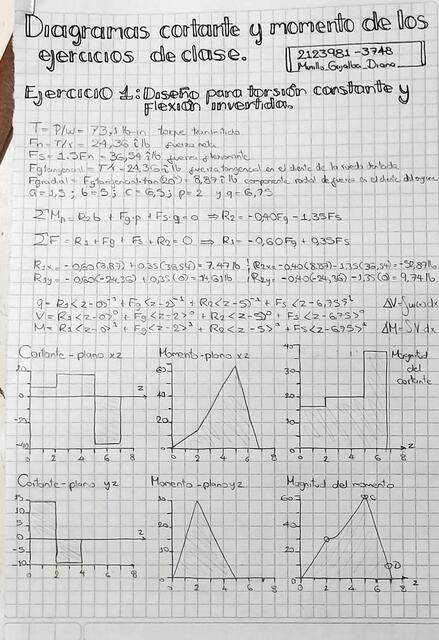 Diagramas cortante y momento de los
ejercicios de clase.
2123981-3748
Murillo Gayalba Diana
Ejercicio 1: Diseño para torsión constante y
flexión invertida.
T = P/ω = 73,1 lb·in torque transmitido
Fn = T/r = 24,36 lb fuerza neta
Fs = 1.5Fn = 36,54 lb fuerza
Fg tangencial = T/r -24,36 lb fuerza tangencial en el diente de la rueda dentada
Fg radial = Fg tangencial·tan(20°) = 8,87 lb componente radial de fuerza en el diente del
a = 1,5; b = 5; c = 6,5; p = 2 y q = 6,75
ΣM₁ = R₂b + Fg·p + Fs·q = 0 ⇒ R₂ = -0,40Fg - 1,35Fs
ΣF = R₁ + Fg + Fs + R₂ = 0 ⇒ R₁ = -0,60Fg + 0,35Fs
R₁x = -0,60(8,87) + 0,35(36,54) = 7.47 lb R₂x = -0,40(8,87) - 1,35(36,54) = -52,87 lb
R₁y = -0,60(-24,36) + 0,35(0) = 14,61 lb R₂y = -0,40(-24,36) - 1,35(0) = 9,74 lb
q = R₁<z-0>⁻¹ + Fg<z-2>⁻¹ + R₂<z-5>⁻¹ + Fs<z-6,75>⁻¹
V = R₁<z-0>⁰ + Fg<z-2>⁰ + R₂<z-5>⁰ + Fs<z-6,75>⁰
M = R₁<z-0>¹ + Fg<z-2>¹ + R₂<z-5>¹ + Fs<z-6,75>¹
Cortante - plano xz
Momento - plano xz
Magnitud
del
cortante
Cortante - plano yz
Momento - plano yz
Magnitud del momento